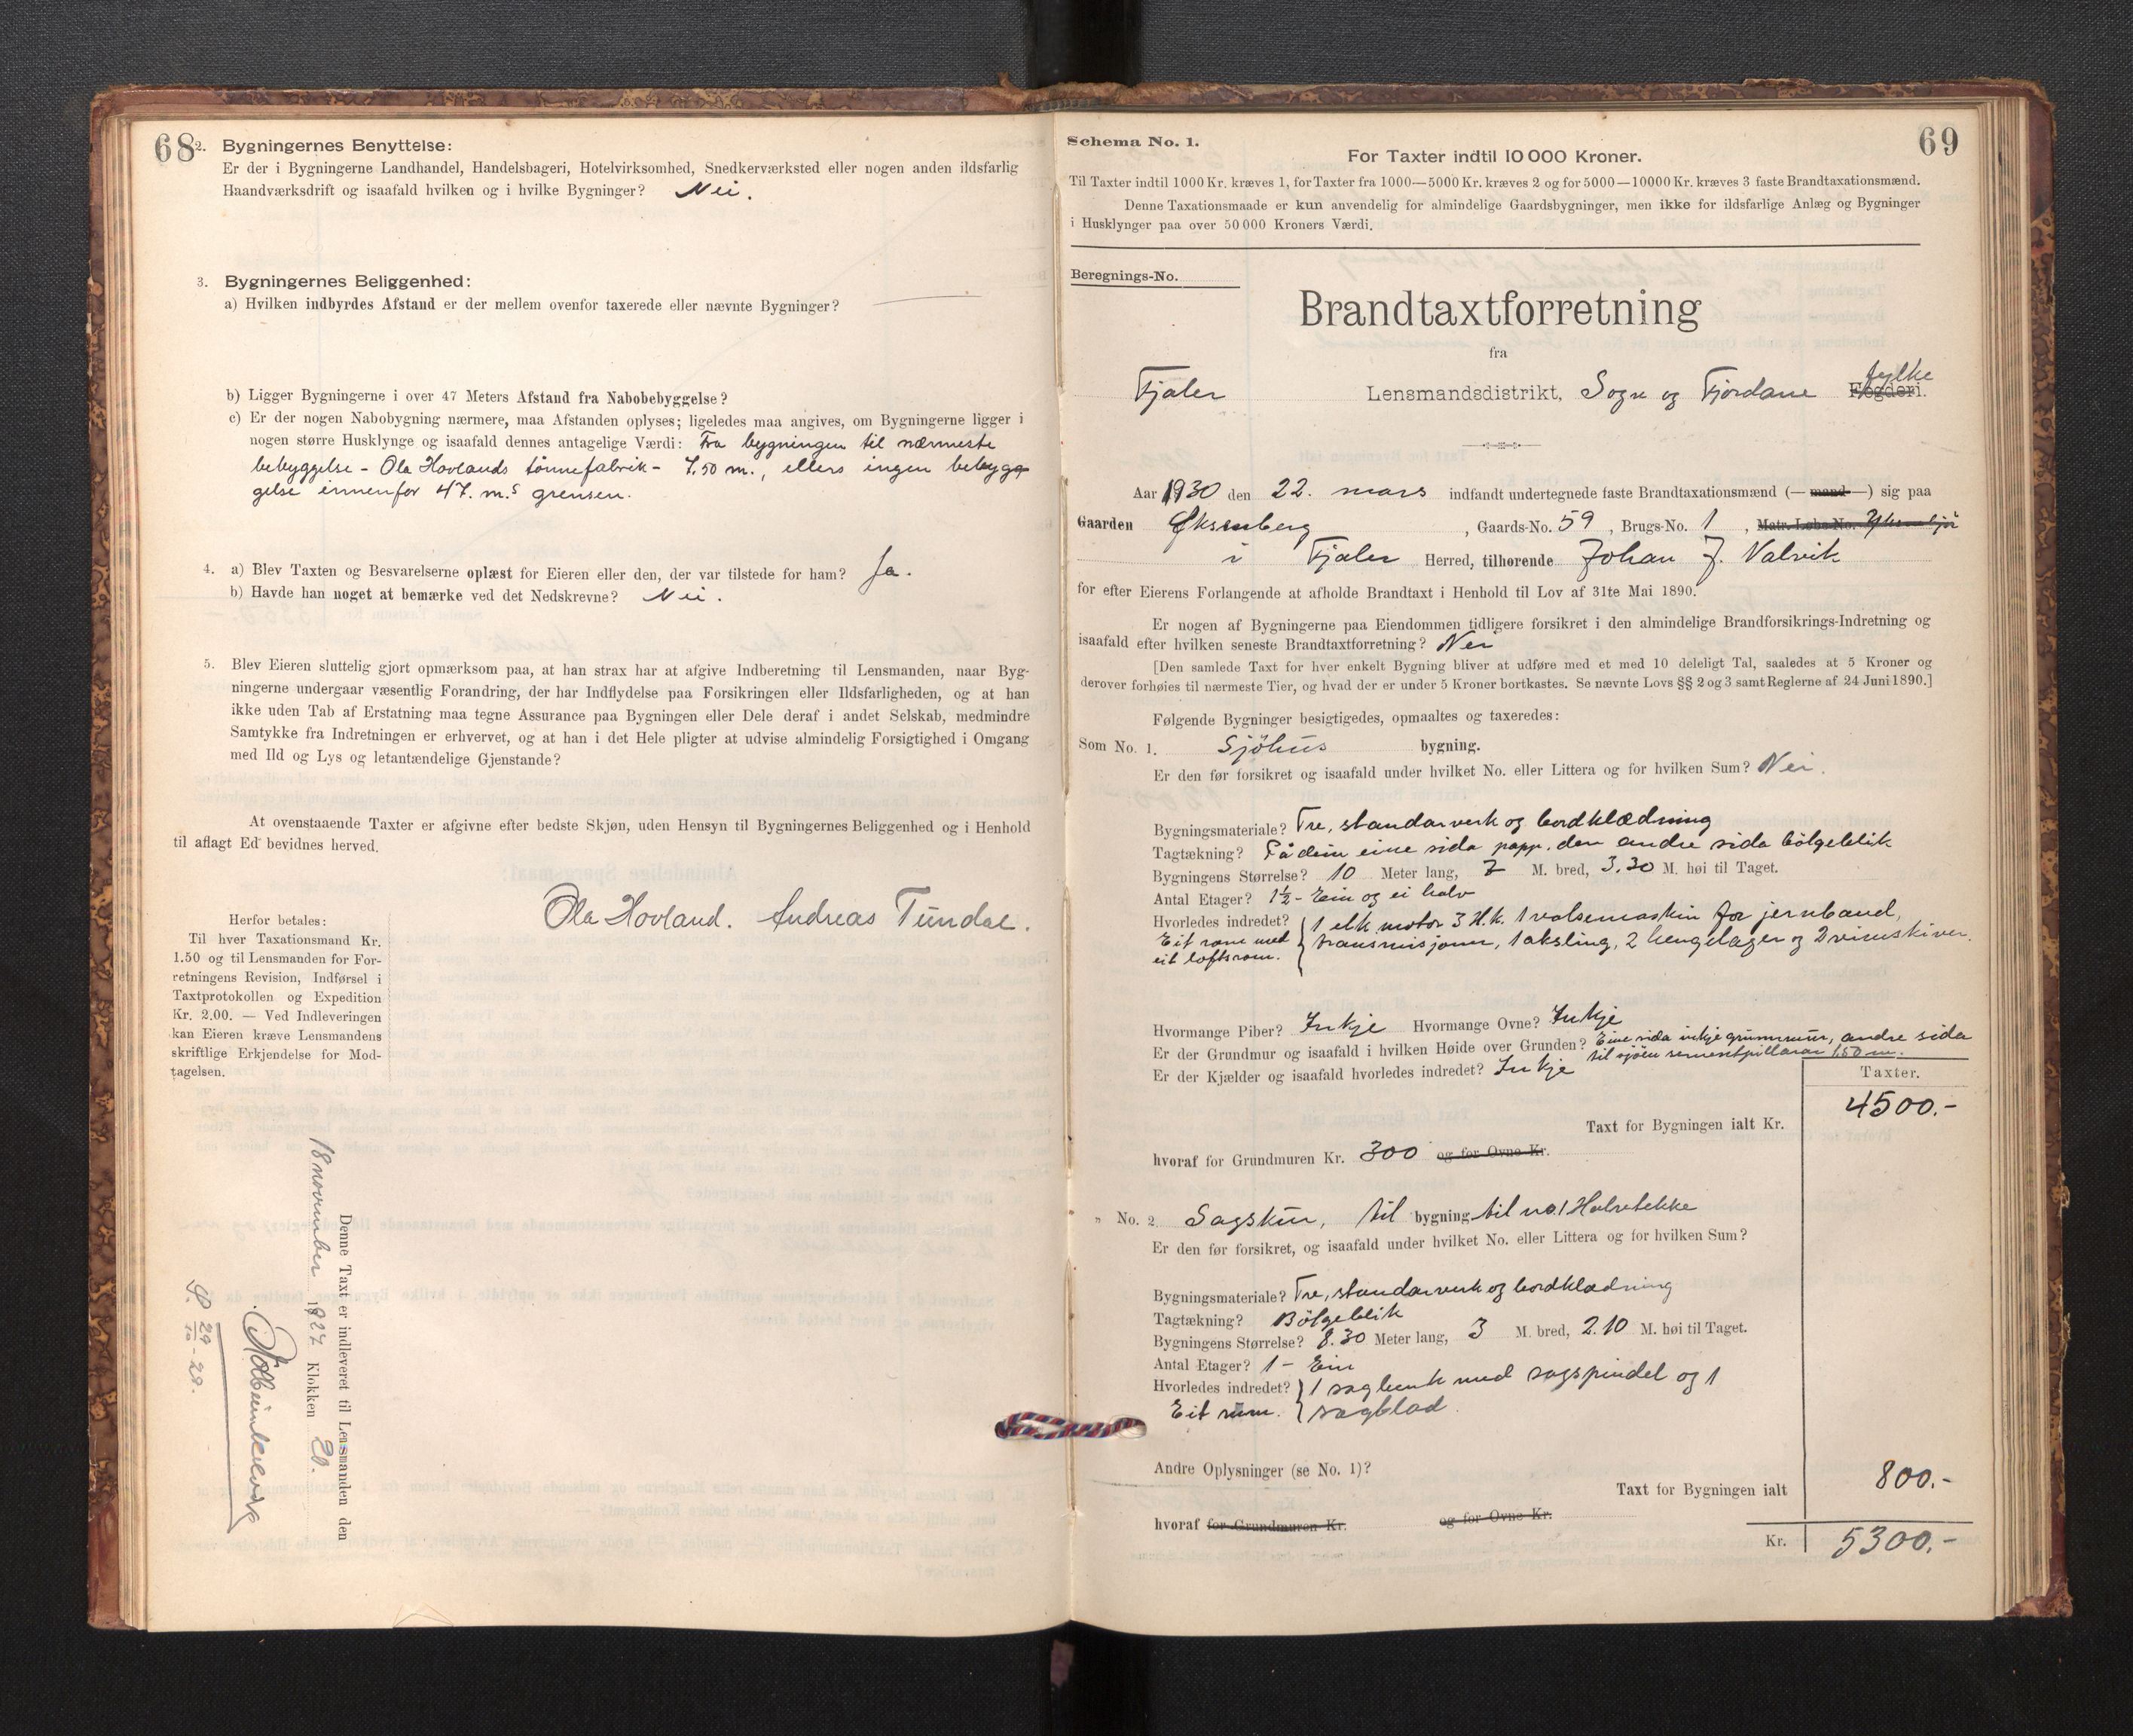 68
2. Bygningernes Benyttelse:
Er der i Bygningerne Landhandel, Handelsbageri, Hotelvirksomhed, Snedkerværksted eller nogen anden ildsfarlig
Haandværksdrift og isaafald hvilken og i hvilke Bygninger? Nei.
3. Bygningernes Beliggenhed:
a) Hvilken indbyrdes Afstand er der mellem ovenfor taxerede eller nævnte Bygninger?
b) Ligger Bygningerne i over 47 Meters Afstand fra Nabobebyggelse?
c) Er der nogen Nabobygning nærmere, maa Afstanden oplyses; ligeledes maa angives, om Bygningerne ligger i
nogen større Husklynge og isaafald dennes antagelige Værdi: Fra bygningen til nærmeste
bebyggelse - Ola Hovlands tönnefabrik - 7.50 m., ellers ingen bebyg-
gelse innenfor 47. m.s grensen.
4. a) Blev Taxten og Besvarelserne oplæst for Eieren eller den, der var tilstede for ham? Ja.
b) Havde han noget at bemærke ved det Nedskrevne? Nei.
5. Blev Eieren sluttelig gjort opmærksom paa, at han strax har at afgive Indberetning til Lensmanden, naar Byg-
ningerne undergaar væsentlig Forandring, der har Indflydelse paa Forsikringen eller Ildsfarligheden, og at han
ikke uden Tab af Erstatning maa tegne Assurance paa Bygningen eller Dele deraf i andet Selskab, medmindre
Samtykke fra Indretningen er erhvervet, og at han i det Hele pligter at udvise almindelig Forsigtighed i Omgang
med Ild og Lys og letantændelige Gjenstande?
At ovenstaaende Taxter er afgivne efter bedste Skjøn, uden Hensyn til Bygningernes Beliggenhed og i Henhold
til aflagt Ed bevidnes herved.
Ola Hovland. Andreas Tundal.
Herfor betales:
Til hver Taxationsmand Kr.
1.50 og til Lensmanden for For-
retningens Revision, Indførsel i
Taxtprotokollen og Expedition
Kr. 2.00. — Ved Indleveringen
kan Eieren kræve Lensmandens
skriftlige Erkjendelse for Mod-
tagelsen.
Denne Taxt er indleveret til Lensmanden den
18 november 1927 Klokken 20.
69
Schema No. 1.
For Taxter indtil 10 000 Kroner.
Til Taxter indtil 1000 Kr. kræves 1, for Taxter fra 1000—5000 Kr. kræves 2 og for 5000—10000 Kr. kræves 3 faste Brandtaxationsmænd.
Denne Taxationsmaade er kun anvendelig for almindelige Gaardsbygninger, men ikke for ildsfarlige Anlæg og Bygninger
i Husklynger paa over 50 000 Kroners Værdi.
Beregnings-No.
Brandtaxtforretning
fra
Fjaler Lensmandsdistrikt, Sogn og Fjordane Fogderi. fylke
Aar 1930 den 22. mars indfandt undertegnede faste Brandtaxationsmænd (— mand —) sig paa
Gaarden Øksenberg, Gaards-No. 59, Brugs-No. 1, Matr. Løbe-No.
i Fjaler Herred, tilhørende Johan J. Valvik
for efter Eierens Forlangende at afholde Brandtaxt i Henhold til Lov af 31te Mai 1890.
Er nogen af Bygningerne paa Eiendommen tidligere forsikret i den almindelige Brandforsikrings-Indretning og
isaafald efter hvilken seneste Brandtaxtforretning? Nei
[Den samlede Taxt for hver enkelt Bygning bliver at udføre med et med 10 deleligt Tal, saaledes at 5 Kroner og
derover forhøies til nærmeste Tier, og hvad der er under 5 Kroner bortkastes. Se nævnte Lovs §§ 2 og 3 samt Reglerne af 24 Juni 1890.]
Følgende Bygninger besigtigedes, opmaaltes og taxeredes:
Som No. 1. Sjöhus bygning.
Er den før forsikret og isaafald under hvilket No. eller Littera og for hvilken Sum? Nei.
Bygningsmateriale? Tre, standarverk og bordklædning
Tagtækning? På dein eine sida papp, den andre sida bölgeblik
Bygningens Størrelse? 10 Meter lang, 7 M. bred, 3.30 M. høi til Taget.
Antal Etager? 1½ - Ein og ei halv
Hvorledes indredet? 1 elk. motor 3 H.k. 1 valsemaskin for jernband,
Eit rom med transmisjoner, 1 aksling, 2 hengelager og 2 reimskiver.
eit loftsrom.
Hvormange Piber? Inkje Hvormange Ovne? Inkje
Er der Grundmur og isaafald i hvilken Høide over Grunden? Eine sida inkje grunnmur, andre sida
til sjöen sementpillarar 1.50 m.
Er der Kjælder og isaafald hvorledes indredet? Inkje
Taxter.
Taxt for Bygningen ialt Kr. 4500.-
hvoraf for Grundmuren Kr. 300 og for Ovne Kr.
" No. 2. Sagskur, til bygning til no. 1 Halvtekke
Er den før forsikret, og isaafald under hvilket No. eller Littera og for hvilken Sum?
Bygningsmateriale? Tre, standarverk og bordklædning
Tagtækning? Bölgeblik
Bygningens Størrelse? 8.30 Meter lang, 3 M. bred, 2.10 M. høi til Taget.
Antal Etager? 1 - Ein
Hvorledes indredet? 1 sagbenk med sagspindel og 1
Eit rum. sagblad.
Andre Oplysninger (se No. 1)?
Taxt for Bygningen ialt 800.-
hvoraf for Grundmuren Kr. og for Ovne Kr.
Kr. 5300.-